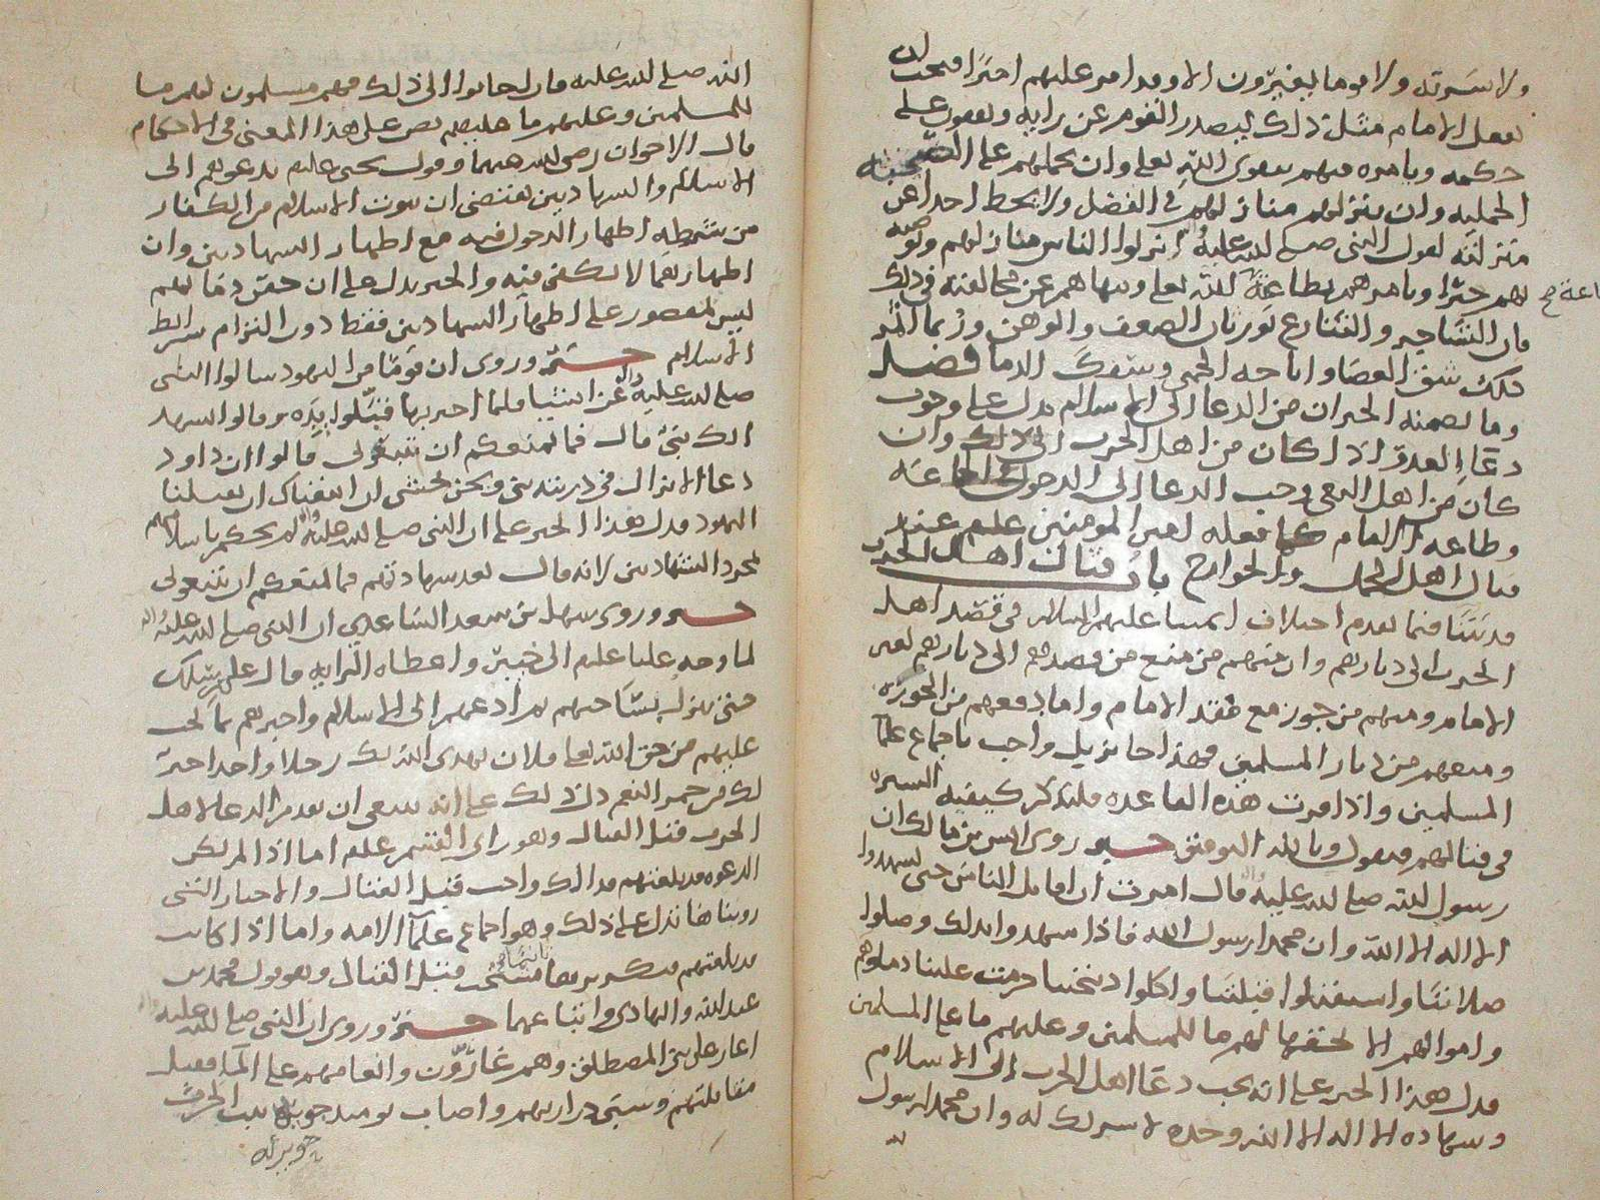 ولا سرية ولا قوما يغيرون الا وقد امر عليهم اميرا فيجب ان
يفعل الامام مثل ذلك ليصدر القوم عن رايه ويعودون على
حكمه ويامره فيهم بتقوى الله تعالى وان يحملهم على
وان ينزلهم منازلهم في الفضل ولا يحط احدا عن
منزلته لقول النبي صلى الله عليه انزلوا الناس منازلهم
لهم خيرا ويامرهم بطاعة الله تعالى وينهاهم عن مخالفته في ذلك
فان التشاجر والتنازع يورثان الضعف والوهن وربما اثمر
ذلك شق العصا واباحه الحمى وسفك الدما فصل
وما تضمنه الخبران من الدعا الى الاسلام يدل على وجوب
دعا العدو اذا كان من اهل الحرب الى ذلك وان
كان من اهل البغي وجب الدعا الى الدخول في الجماعه
وطاعه الامام كما فعله امير المومنين علم عند
قتال اهل الجمل والخوارج باب قتال اهل الحرب
قد بينا فيما تقدم اختلاف ايمتنا عليهم السلام في قصد اهل
الحرب الى ديارهم وان منهم من منع من قصدهم الى ديارهم لغير
الامام ومنهم من جوز مع فقد الامام واما دفعهم من الحوزة
ومنعهم من ديار المسلمين فهذا جايز بل واجب باجماع علما
المسلمين واذا قررت هذه القاعده فلنذكر كيفيه السيره
في قتالهم فنقول وبالله التوفيق خبر روى انس بن مالك ان
رسول الله صلى الله عليه واله قال امرت ان اقاتل الناس حتى يشهدوا
الا اله الا الله وان محمدا رسول الله فاذا شهدوا بذلك وصلوا
صلاتنا واستقبلوا قبلتنا واكلوا ذبيحتنا حرمت علينا دماوهم
واموالهم الا بحقها لهم ما للمسلمين وعليهم ما على المسلمين
فدل هذا الخبر على انه يجب دعا اهل الحرب الى الاسلام
وشهاده الا اله الا الله وحده لا شريك له وان محمدا رسول
الله صلى الله عليه فان اجابوا الى ذلك فهم مسلمون لهم ما
للمسلمين وعليهم ما عليهم نص على هذا المعنى في الاحكام
قال الاخوان رضي الله عنهما وقول يحيى عليم يدعوهم الى
الاسلام والشهادتين يقتضي ان ثبوت الاسلام من الكفار
من شرطه اظهار الدخول فيه مع اظهار الشهادتين وان
اظهارهما لا يكفي فيه والخبر يدل على ان حقن دمايهم
ليس بمقصور على اظهار الشهادتين فقط دون التزام شرايط
الاسلام خبر وروى ان قوما من اليهود سالوا النبي
صلى الله عليه واله عن اشيا فلما اخبر بها قبلوا يده وقالوا نشهد
انك نبي قال فما يمنعكم ان تتبعوني قالوا ان داود
دعا الا يزال في ذريته نبي ونحن نخشى ان اتبعناك ان تقتلنا
اليهود فدل هذا الخبر على ان النبي صلى الله عليه واله لم يحكم باسلامهم
بمجرد الشهادتين لانه قال بعد شهادتهم فما يمنعكم ان تتبعوني
خبر وروى سهل بن سعد الساعدي ان النبي صلى الله عليه واله
لما وجه عليا علم الى خيبر واعطاه الرايه قال على رسلك
حتى تنزل بساحتهم ثم ادعهم الى الاسلام واخبرهم بما يجب
عليهم من حق الله تعالى فلان يهدي الله بك رجلا واحدا خير
لك من حمر النعم دل ذلك على انه ينبغي ان يقدم الدعا لاهل
الحرب قبل القتال وهو راي القسم علم اما اذا لم تكن
الدعوه قد بلغتهم فذلك واجب قبل القتال والاخبار التي
روينا ها تدل على ذلك وهو اجماع علما الامه واما اذا كانت
قد بلغتهم فتكريرها مستحب قبل القتال وهو قول محمد بن
عبد الله والهادي واتباعهما خبر وروى ان النبي صلى الله عليه واله
اغار على بني المصطلق وهم غارون وانعامهم على الما فقتل
مقاتلتهم وسبى ذراريهم واصاب يوميذ جويريه بنت الحرث
جويريه